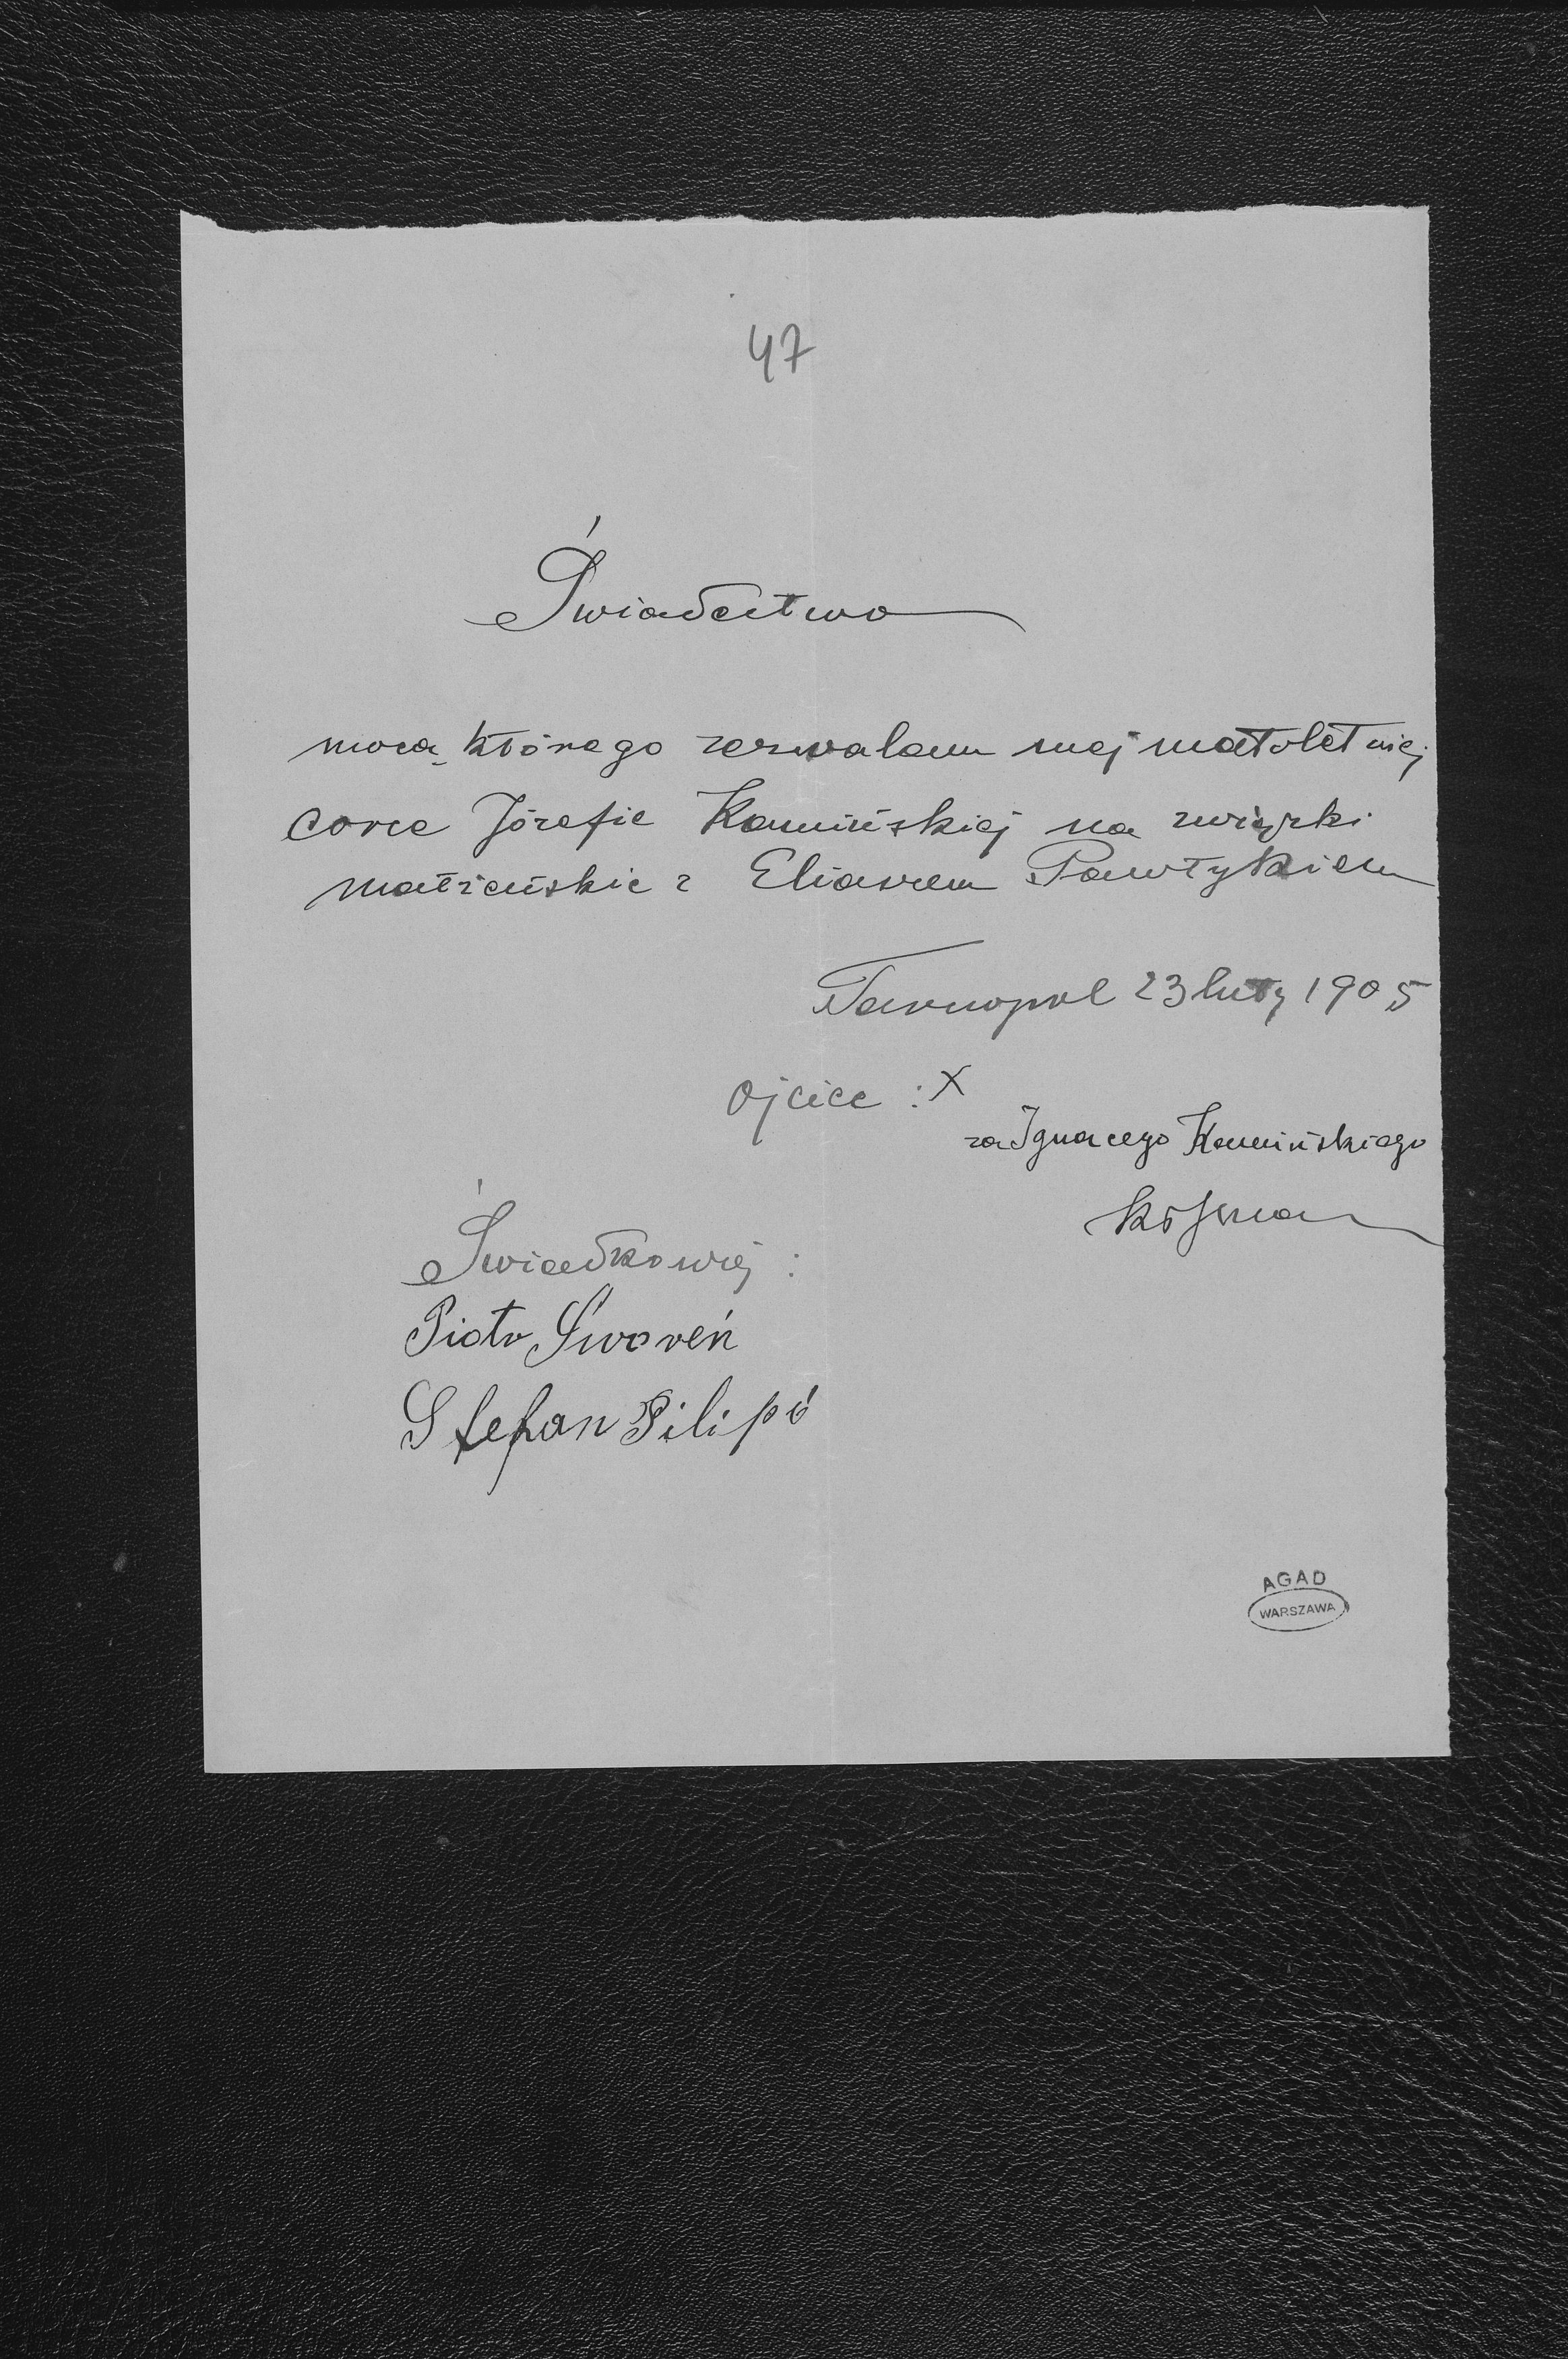 47
Świadectwo
mocą którego zezwalam mej małoletniej
corce Józefie Kamińskiej na związki
małżeńskie z Eliaszem Pawłykiem
Tarnopol 23 luty 1905
Ojciec : X
za Ignacego Kamińskiego
Świadkowiej :
Piotr Sworeń
Stefan Pilipó
AGAD
WARSZAWA